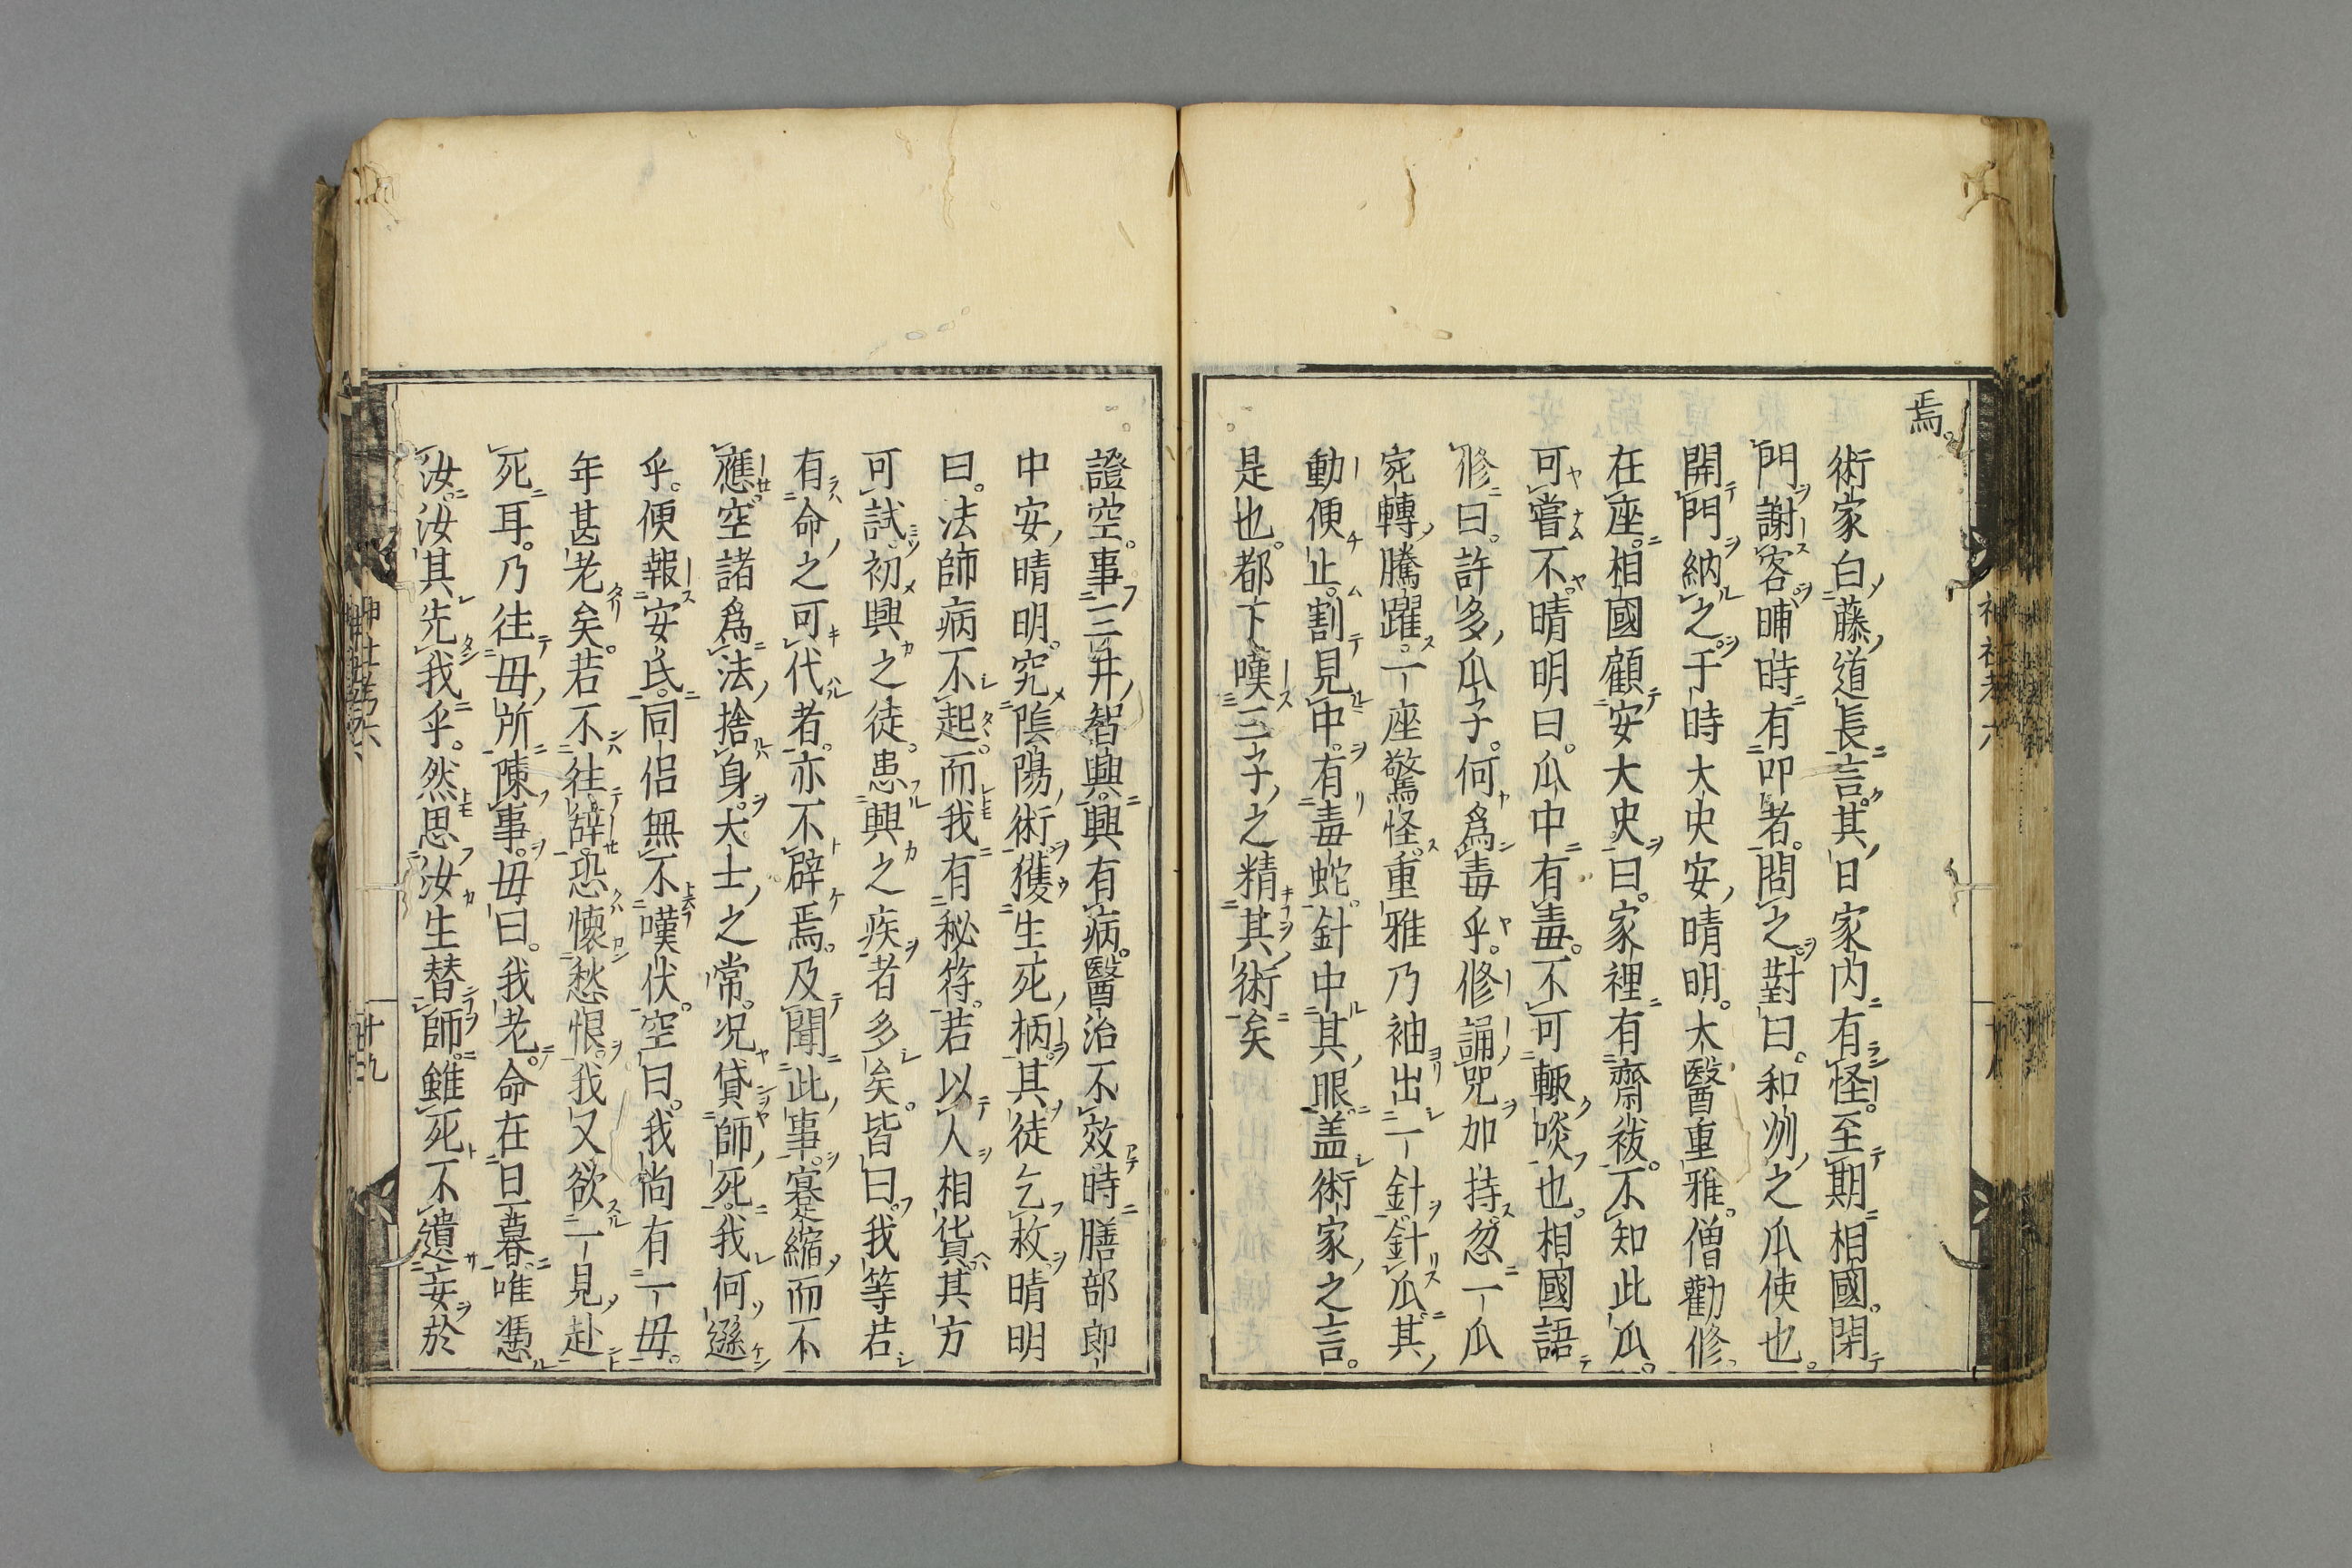 焉。
術家白藤道長言。其日家内有怪。至期相國。閉
門謝客。晡時有叩者。問之對曰。和州之瓜使也。
開門納之。于時大史安晴明。大醫重雅。僧勸修。
在座。相國顧安大史曰。家裡有齋祓。不知此瓜。
可嘗不。晴明曰。瓜中有毒。不可輙啖也。相國語
修曰。許多瓜子。何爲毒乎。修誦咒加持。忽一瓜
宛轉騰躍。一座驚怪。重雅乃袖出一針針瓜。其
動便止。割見中。有毒蛇。針中其眼。盖術家之言。
是也。都下嘆三子之精其術矣
證空。事三井智興。興有病。醫治不效。時膳部郎
中安晴明。究陰陽術。獲生死柄。其徒乞救。晴明
曰。法師病不起。而我有秘符。若以人相貨。其方
可試。初興之徒。患興之疾者多矣。皆曰。我等若
有命之可代者。亦不辟焉。及聞此事。蹇縮而不
應。空諸爲法捨身。大士之常。况貸師死。我何遜
乎。便報安氏。同侶無不嘆伏。空曰。我尚有一母。
年甚老矣。若不往辭。恐懷愁恨。我又欲一見赴
死耳。乃往母所陳事。母曰。我老。命在日暮。唯憑
汝。汝其先我乎。然思汝生替師。雖死不遺。妄於
神社考六
十九